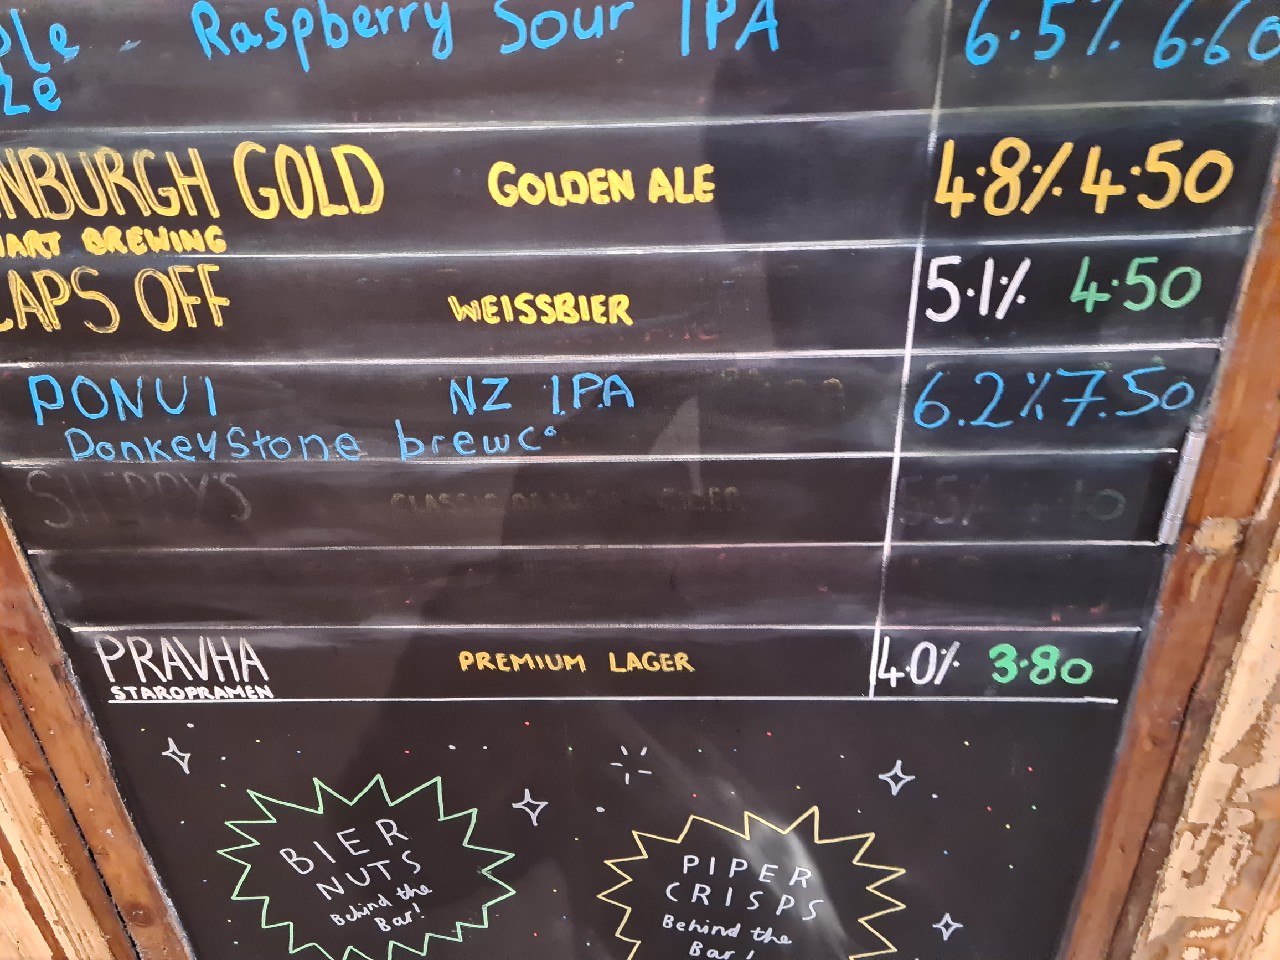 ple - Raspberry Sour IPA 6.5% 6.60
ze
NBURGH GOLD GOLDEN ALE 4.8% 4.50
ART BREWING
CAPS OFF WEISSBIER 5.1% 4.50
PONUI NZ IPA 6.2% 7.50
Donkeystone brewCo
SHEPPY'S CLASSIC CIDER 5.5%
PRAVHA PREMIUM LAGER 4.0% 3.80
STAROPRAMEN
BIER
NUTS
Behind the
Bar!
PIPER
CRISPS
Behind the
Bar!